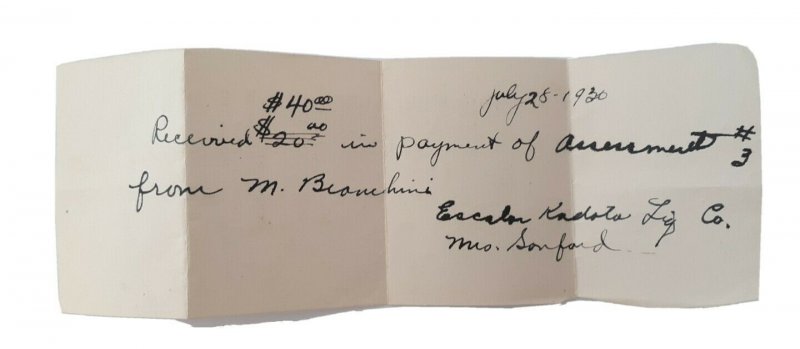 $40.00
July 28-1930
Received $20.00 in payment of Assessment #3
from M. Bianchini
Escalon Kadota Fig Co.
Mrs. Sanford